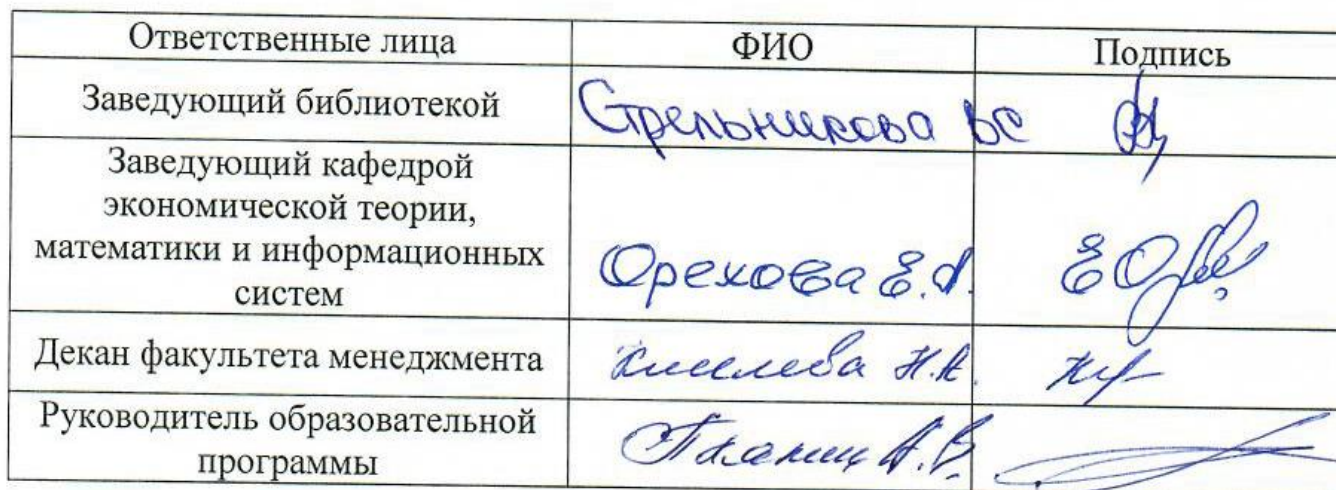 Ответственные лица ФИО Подпись
Заведующий библиотекой Стрельникова ВС
Заведующий кафедрой
экономической теории,
математики и информационных
систем Орехова Е.А.
Декан факультета менеджмента Н.А.
Руководитель образовательной
программы А.В.